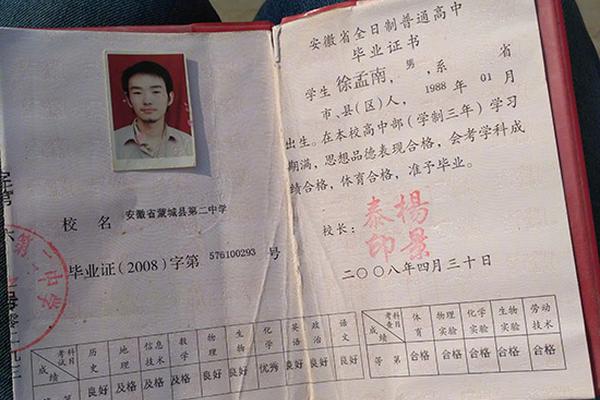 校 名 安徽省蒙城县第二中学
毕业证(2008)字第 576100293 号
第二中学
考试科目 历史 地理 信息技术 数学 物理 生物 化学 英语 政治 语文
成绩 良好 及格 及格 及格 良好 良好 优秀 良好 良好 良好
安徽省全日制普通高中
毕业证书
学生 徐孟南, 男, 系 省
市、县(区)人, 1988 年 01 月
出生。在本校高中部(学制三年)学习
期满,思想品德表现合格,会考学科成
绩合格,体育合格,准予毕业。
校长: 杨景泰印
二〇〇八年四月三十日
考查科目 体育 物理实验 化学实验 生物实验 劳动技术
成绩 等第 合格 合格 合格 合格 合格